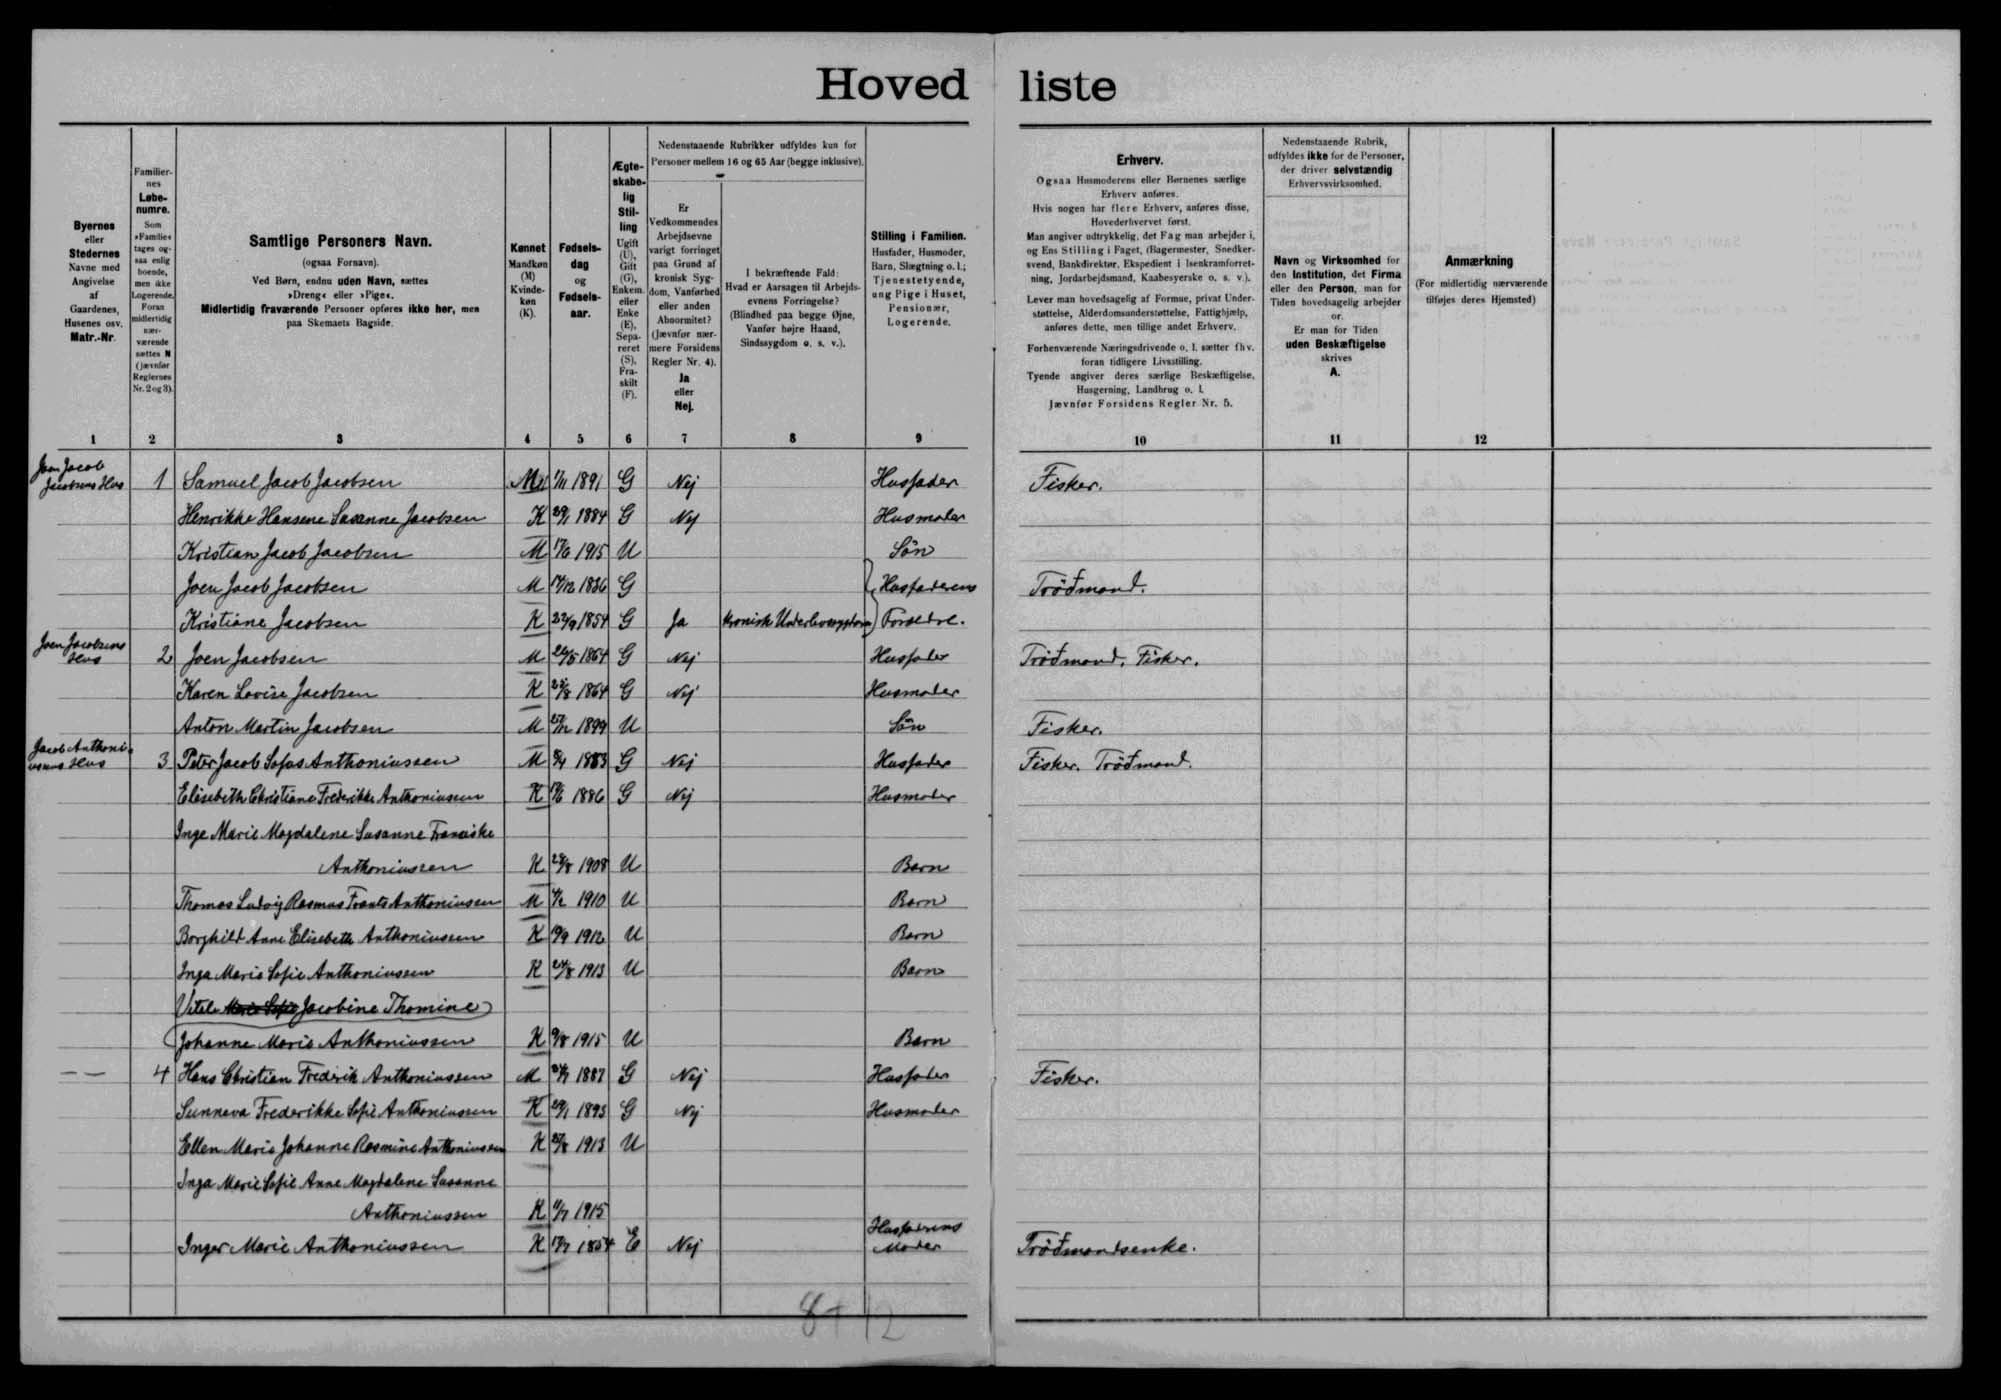 Hovedliste
Byernes
eller
Stedernes
Navne med
Angivelse
af
Gaardenes,
Husenes osv.
Matr.-Nr.
Familier-
nes
Løbe-
numre.
Som
»Familie«
tages og-
saa enlig
boende,
men ikke
Logerende.
Foran
midlertidig
nær-
værende
sættes N
(jævnfør
Reglernes
Nr. 2 og 3).
Samtlige Personers Navn.
(ogsaa Fornavn).
Ved Børn, endnu uden Navn, sættes
»Dreng« eller »Pige«.
Midlertidig fraværende Personer opføres ikke her, men
paa Skemaets Bagside.
Kønnet
Mandkøn
(M)
Kvinde-
køn
(K).
Fødsels-
dag
og
Fødsels-
aar.
Ægte-
skabe-
lig
Stil-
ling
Ugift
(U),
Gift
(G),
Enkem.
eller
Enke
(E),
Sepa-
reret
(S),
Fra-
skilt
(F).
Nedenstaaende Rubrikker udfyldes kun for
Personer mellem 16 og 65 Aar (begge inklusive).
Er
Vedkommendes
Arbejdsevne
varigt forringet
paa Grund af
kronisk Syg-
dom, Vanførhed
eller anden
Abnormitet?
(Jævnfør nær-
mere Forsidens
Regler Nr. 4).
Ja
eller
Nej.
I bekræftende Fald:
Hvad er Aarsagen til Arbejds-
evnens Forringelse?
(Blindhed paa begge Øjne,
Vanfør højre Haand,
Sindssygdom o. s. v.).
Stilling i Familien.
Husfader, Husmoder,
Barn, Slægtning o. l.;
Tjenestetyende,
ung Pige i Huset,
Pensionær,
Logerende.
Erhverv.
Ogsaa Husmoderens eller Børnenes særlige
Erhverv anføres.
Hvis nogen har flere Erhverv, anføres disse,
Hovederhvervet først.
Man angiver udtrykkelig, det Fag man arbejder i,
og Ens Stilling i Faget, (Bagermester, Snedker-
svend, Bankdirektør, Ekspedient i Isenkramforret-
ning, Jordarbejdsmand, Kaabesyerske o. s. v.).
Lever man hovedsagelig af Formue, privat Under-
støttelse, Alderdomsunderstøttelse, Fattighjælp,
anføres dette, men tillige andet Erhverv.
Forhenværende Næringsdrivende o. l. sætter fhv.
foran tidligere Livsstilling.
Tyende angiver deres særlige Beskæftigelse,
Husgerning, Landbrug o. l.
Jævnfør Forsidens Regler Nr. 5.
Nedenstaaende Rubrik,
udfyldes ikke for de Personer,
der driver selvstændig
Erhvervsvirksomhed.
Navn og Virksomhed for
den Institution, det Firma
eller den Person, man for
Tiden hovedsagelig arbejder
for.
Er man for Tiden
uden Beskæftigelse
skrives
A.
Anmærkning
(For midlertidig nærværende
tilføjes deres Hjemsted)
1 2 3 4 5 6 7 8 9 10 11 12
Joen Jacob
Jacobsens Hus 1 Samuel Jacob Jacobsen M 1/11 1891 G Nej Husfader Fisker.
Henrikke Hansene Susanne Jacobsen K 29/1 1884 G Nej Husmoder
Kristian Jacob Jacobsen M 17/6 1915 U Sön
Joen Jacob Jacobsen M 14/12 1836 G Husfaderens Tróðmand.
Kristiane Jacobsen K 22/9 1854 G Ja kronisk Underlivssygdom Forældre.
Joen Jacobsens
Hus 2 Joen Jacobsen M 26/5 1864 G Nej Husfader Tróðmand, Fisker.
Karen Lovise Jacobsen K 23/8 1864 G Nej Husmoder
Anton Martin Jacobsen M 25/12 1899 U Sön Fisker.
Jacob Anthoni-
ussens Hus 3 Peter Jacob Sofus Anthoniussen M 8/4 1883 G Nej Husfader Fisker. Tróðmand.
Elisebeth Christiane Frederikke Anthoniussen K 17/6 1886 G Nej Husmoder
Inge Marie Magdalene Susanne Franciske
Anthoniussen K 28/8 1908 U Barn
Thomas Ludvig Rasmus Frants Anthoniussen M 4/2 1910 U Barn
Borghild Anne Elisebeth Anthoniussen K 19/9 1912 U Barn
Inga Marie Sofie Anthoniussen K 24/8 1913 U Barn
Marie Sofie Jacobine Thomine
Johanne Marie Anthoniussen K 9/8 1915 U Barn
— — 4 Hans Christian Frederik Anthoniussen M 24/7 1887 G Nej Husfader Fisker.
Sunneva Frederikke Sofie Anthoniussen K 29/1 1893 G Nej Husmoder
Ellen Marie Johanne Rasmine Anthoniussen K 27/8 1913 U
Inga Marie Sofie Anne Magdalene Susanne
Anthoniussen K 11/7 1915
Inger Marie Anthoniussen K 17/7 1854 E Nej Husfaderens
Moder Tróðmandsenke.
8+12